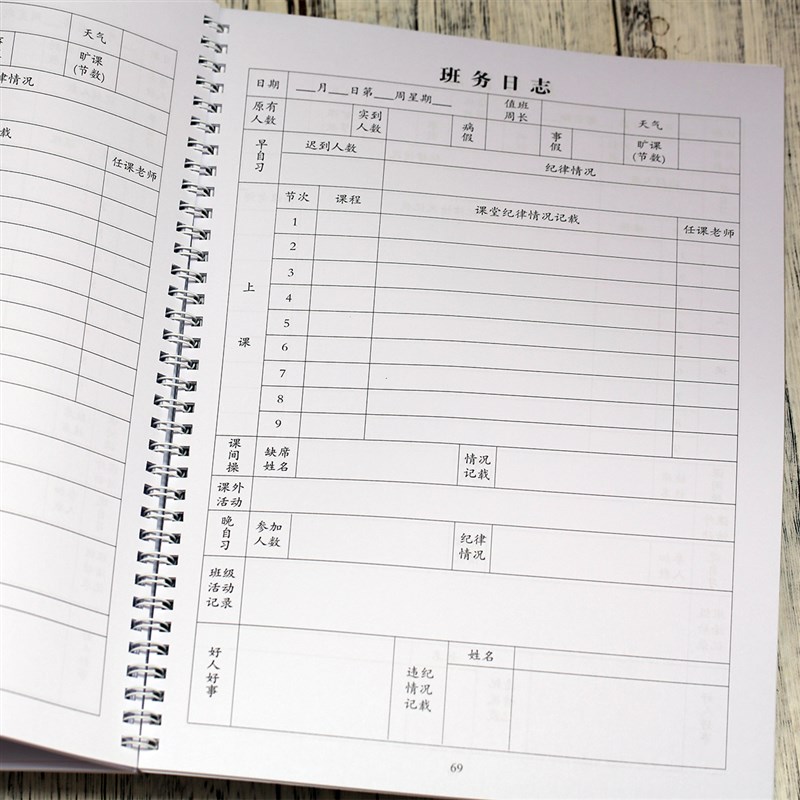 天气
旷课
(节数)
律情况
载
任课老师
班务日志
日期 ___月___日第___周星期___ 值班周长 天气
原有人数 实到人数 病假 事假 旷课(节数)
早自习 迟到人数 纪律情况
上课 节次 课程 课堂纪律情况记载 任课老师
1
2
3
4
5
6
7
8
9
课间操 缺席姓名 情况记载
课外活动
晚自习 参加人数 纪律情况
班级活动记录
好人好事 违纪情况记载 姓名
69